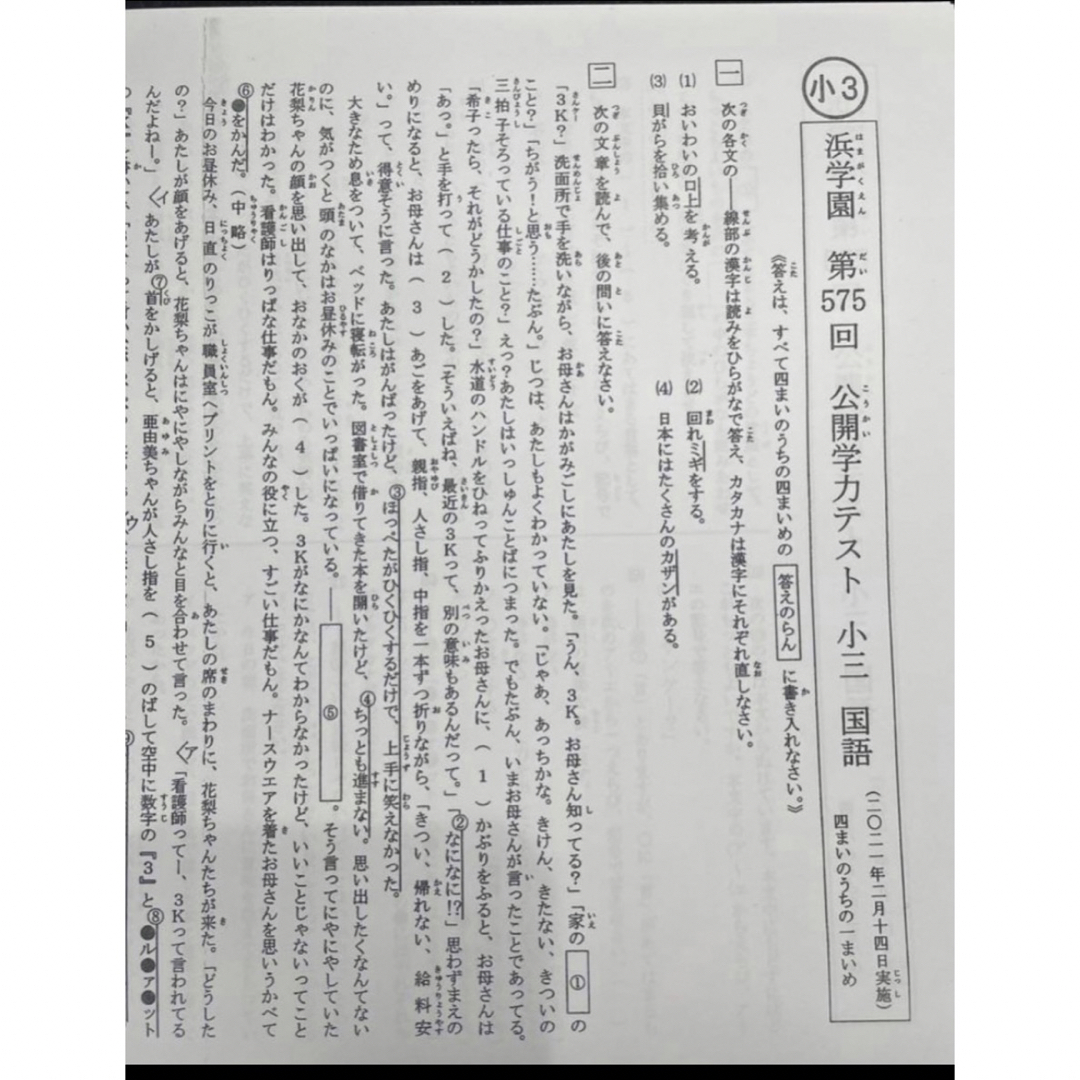 小3
浜学園 第575回 公開学力テスト 小三 国語
(二〇二一年二月十四日実施)
四まいのうちの一まいめ
《答えは、すべて四まいのうちの四まいめの 答えのらん に書き入れなさい。》
一 次の各文の――線部の漢字は読みをひらがなで答え、カタカナは漢字にそれぞれ直しなさい。
(1) おいわいの口上を考える。
(2) 回れミギをする。
(3) 貝がらを拾い集める。
(4) 日本にはたくさんのカザンがある。
二 次の文章を読んで、後の問いに答えなさい。
「3K?」洗面所で手を洗いながら、お母さんはかがみごしにあたしを見た。「うん、3K。お母さん知ってる?」「家の ① の
こと?」「ちがう!と思う……たぶん。」じつは、あたしもよくわかっていない。「じゃあ、あっちかな。きけん、きたない、きついの
三拍子そろっている仕事のこと?」えっ?あたしはいっしゅんことばにつまった。でもたぶん、いまお母さんが言ったことであってる。
「希子ったら、それがどうかしたの?」水道のハンドルをひねってふりかえったお母さんに、(1)かぶりをふると、お母さんは
「あっ。」と手を打って(2)した。「そういえばね、最近の3Kって、別の意味もあるんだって。」「②なになに!?」思わずまえの
めりになると、お母さんは(3)あごをあげて、親指、人さし指、中指を一本ずつ折りながら、「きつい、帰れない、給料安
い。」って、得意そうに言った。あたしはがんばったけど、③ほっぺたがひくひくするだけで、上手に笑えなかった。
大きなため息をついて、ベッドに寝転がった。図書室で借りてきた本を開いたけど、④ちっとも進まない。思い出したくなんてない
のに、気がつくと頭のなかはお昼休みのことでいっぱいになっている。―― ⑤ 。そう言ってにやにやしていた
花梨ちゃんの顔を思い出して、おなかのおくが(4)した。3Kがなにかなんてわからなかったけど、いいことじゃないってこと
だけはわかった。看護師はりっぱな仕事だもん。みんなの役に立つ、すごい仕事だもん。ナースウエアを着たお母さんを思いうかべて
⑥●をかんだ。(中略)
今日のお昼休み、日直のりっこが職員室へプリントをとりに行くと、あたしの席のまわりに、花梨ちゃんたちが来た。「どうした
の?」あたしが顔をあげると、花梨ちゃんはにやにやしながらみんなと目を合わせて言った。〈ア〉「看護師ってー、3Kって言われてる
んだよねー。」〈イ〉あたしが⑦首をかしげると、亜由美ちゃんが人さし指を(5)のばして空中に数字の『3』と⑧●ル●ア●ット